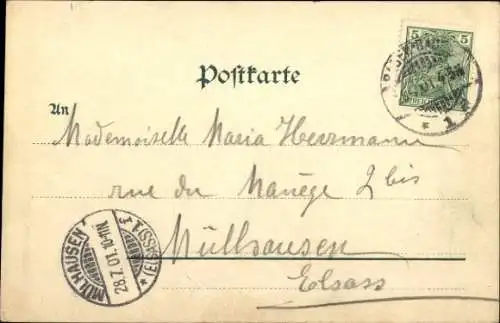 5 5
Postkarte
An
Mademoiselle Maria Herrmann
rue du Manège 2 bis
Müllhausen
Elsass
MÜLHAUSEN
28.7.01. 10-11N
(ELSASS) 1
* 1